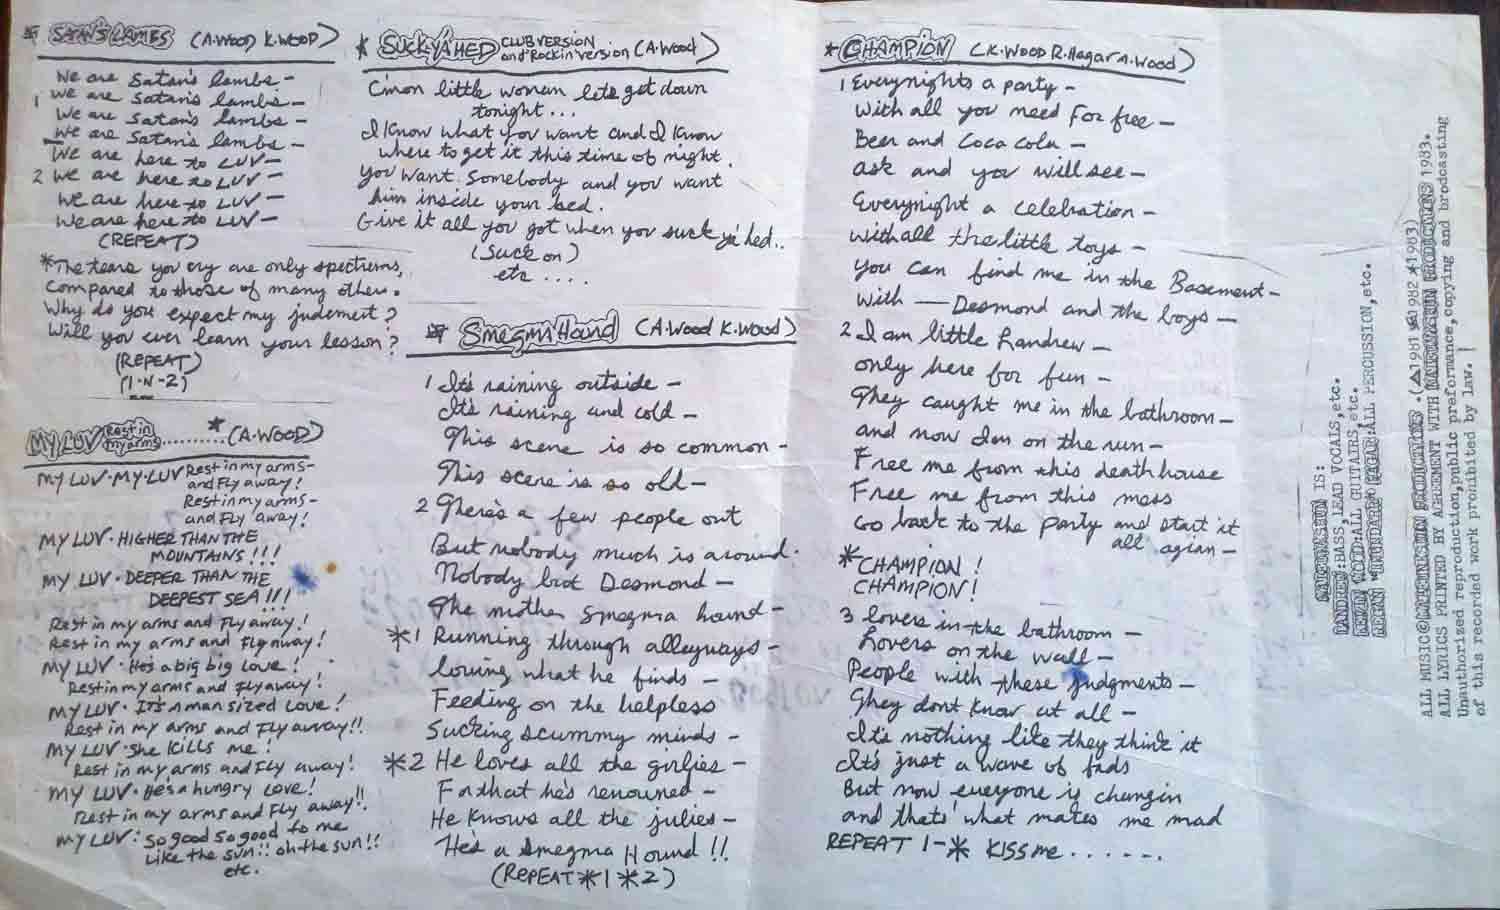 * SATAN'S LAMBS (A.WOOD K.WOOD)
We are Satan's lambs -
1 We are Satan's lambs -
We are Satan's lambs -
We are Satan's lambs -
We are here to LUV -
2 We are here to LUV -
We are here to LUV -
We are here to LUV -
(REPEAT)
*The tears you cry are only spectrums,
Compared to those of many others.
Why do you expect my judement?
Will you ever learn your lesson?
(REPEAT)
(1-N-2)
MY LUV Rest in my arms ......... * (A.WOOD)
MY LUV-MY-LUV Rest in my arms-
and Fly away!
Rest in my arms-
and Fly away!
MY LUV-HIGHER THAN THE
MOUNTAINS!!!
MY LUV-DEEPER THAN THE
DEEPEST SEA!!!
Rest in my arms and Fly away!
Rest in my arms and Fly away!
MY LUV-He's a big big Love!
Rest in my arms and Fly away!
MY LUV-It's A man sized Love!
Rest in my arms and Fly away!!
MY LUV-She Kills me!
Rest in my arms and Fly away!
MY LUV-He's a hungry Love!
Rest in my arms and Fly away!!
MY LUV: So good So good to me
Like the sun!! oh the sun!!
etc.
* SUCK YA' HED CLUB VERSION
and "Rockin' version (A.Wood)
C'mon little woman lets get down
tonight...
I know what you want and I know
where to get it this time of night.
You want somebody and you want
him inside your bed.
Give it all you got when you suck ya' hed..
(Suck on)
etc....
* Smegma Hound (A.Wood K.Wood)
1 It's raining outside -
It's raining and cold -
This scene is so common -
This scene is so old -
2 There's a few people out
But nobody much is around.
Nobody but Desmond -
The mother smegma hound -
*1 Running through alleyways -
loving what he finds -
Feeding on the helpless
Sucking scummy minds -
*2 He loves all the girlies -
For that he's renouned -
He knows all the julies -
He's a Smegma Hound!!
(REPEAT *1 *2)
* CHAMPION (K.Wood R.Hagar A.Wood)
1 Everynights a party -
With all you need For free -
Beer and Coca cola -
ask and you will see -
Everynight a celebration -
With all the little toys -
You can find me in the Basement -
With — Desmond and the boys -
2 I am little Landrew -
only here for fun -
They caught me in the bathroom -
and now I'm on the run -
Free me from this death house
Free me from this mess
Go back to the party and start it
all agian -
*CHAMPION!
CHAMPION!
3 Lovers in the bathroom -
Lovers on the wall -
People with these judgments -
They dont know at all -
It's nothing like they think it
It's just a wave of fads
But now everyone is changin
and thats' what makes me mad
REPEAT 1-* KISS me.......
IS:
LANDREW:BASS,LEAD VOCALS,etc.
KEVIN WOOD:ALL GUITAIRS,etc.
HAGAR:ALL PERCUSSION,etc.
ALL MUSIC© .(1981 1982 *1983)
ALL LYRICS PRINTED BY AGREEMENT WITH 1983.
Unauthorized reproduction,public preformance,copying and brodcasting
of this recorded work prohibited by law.